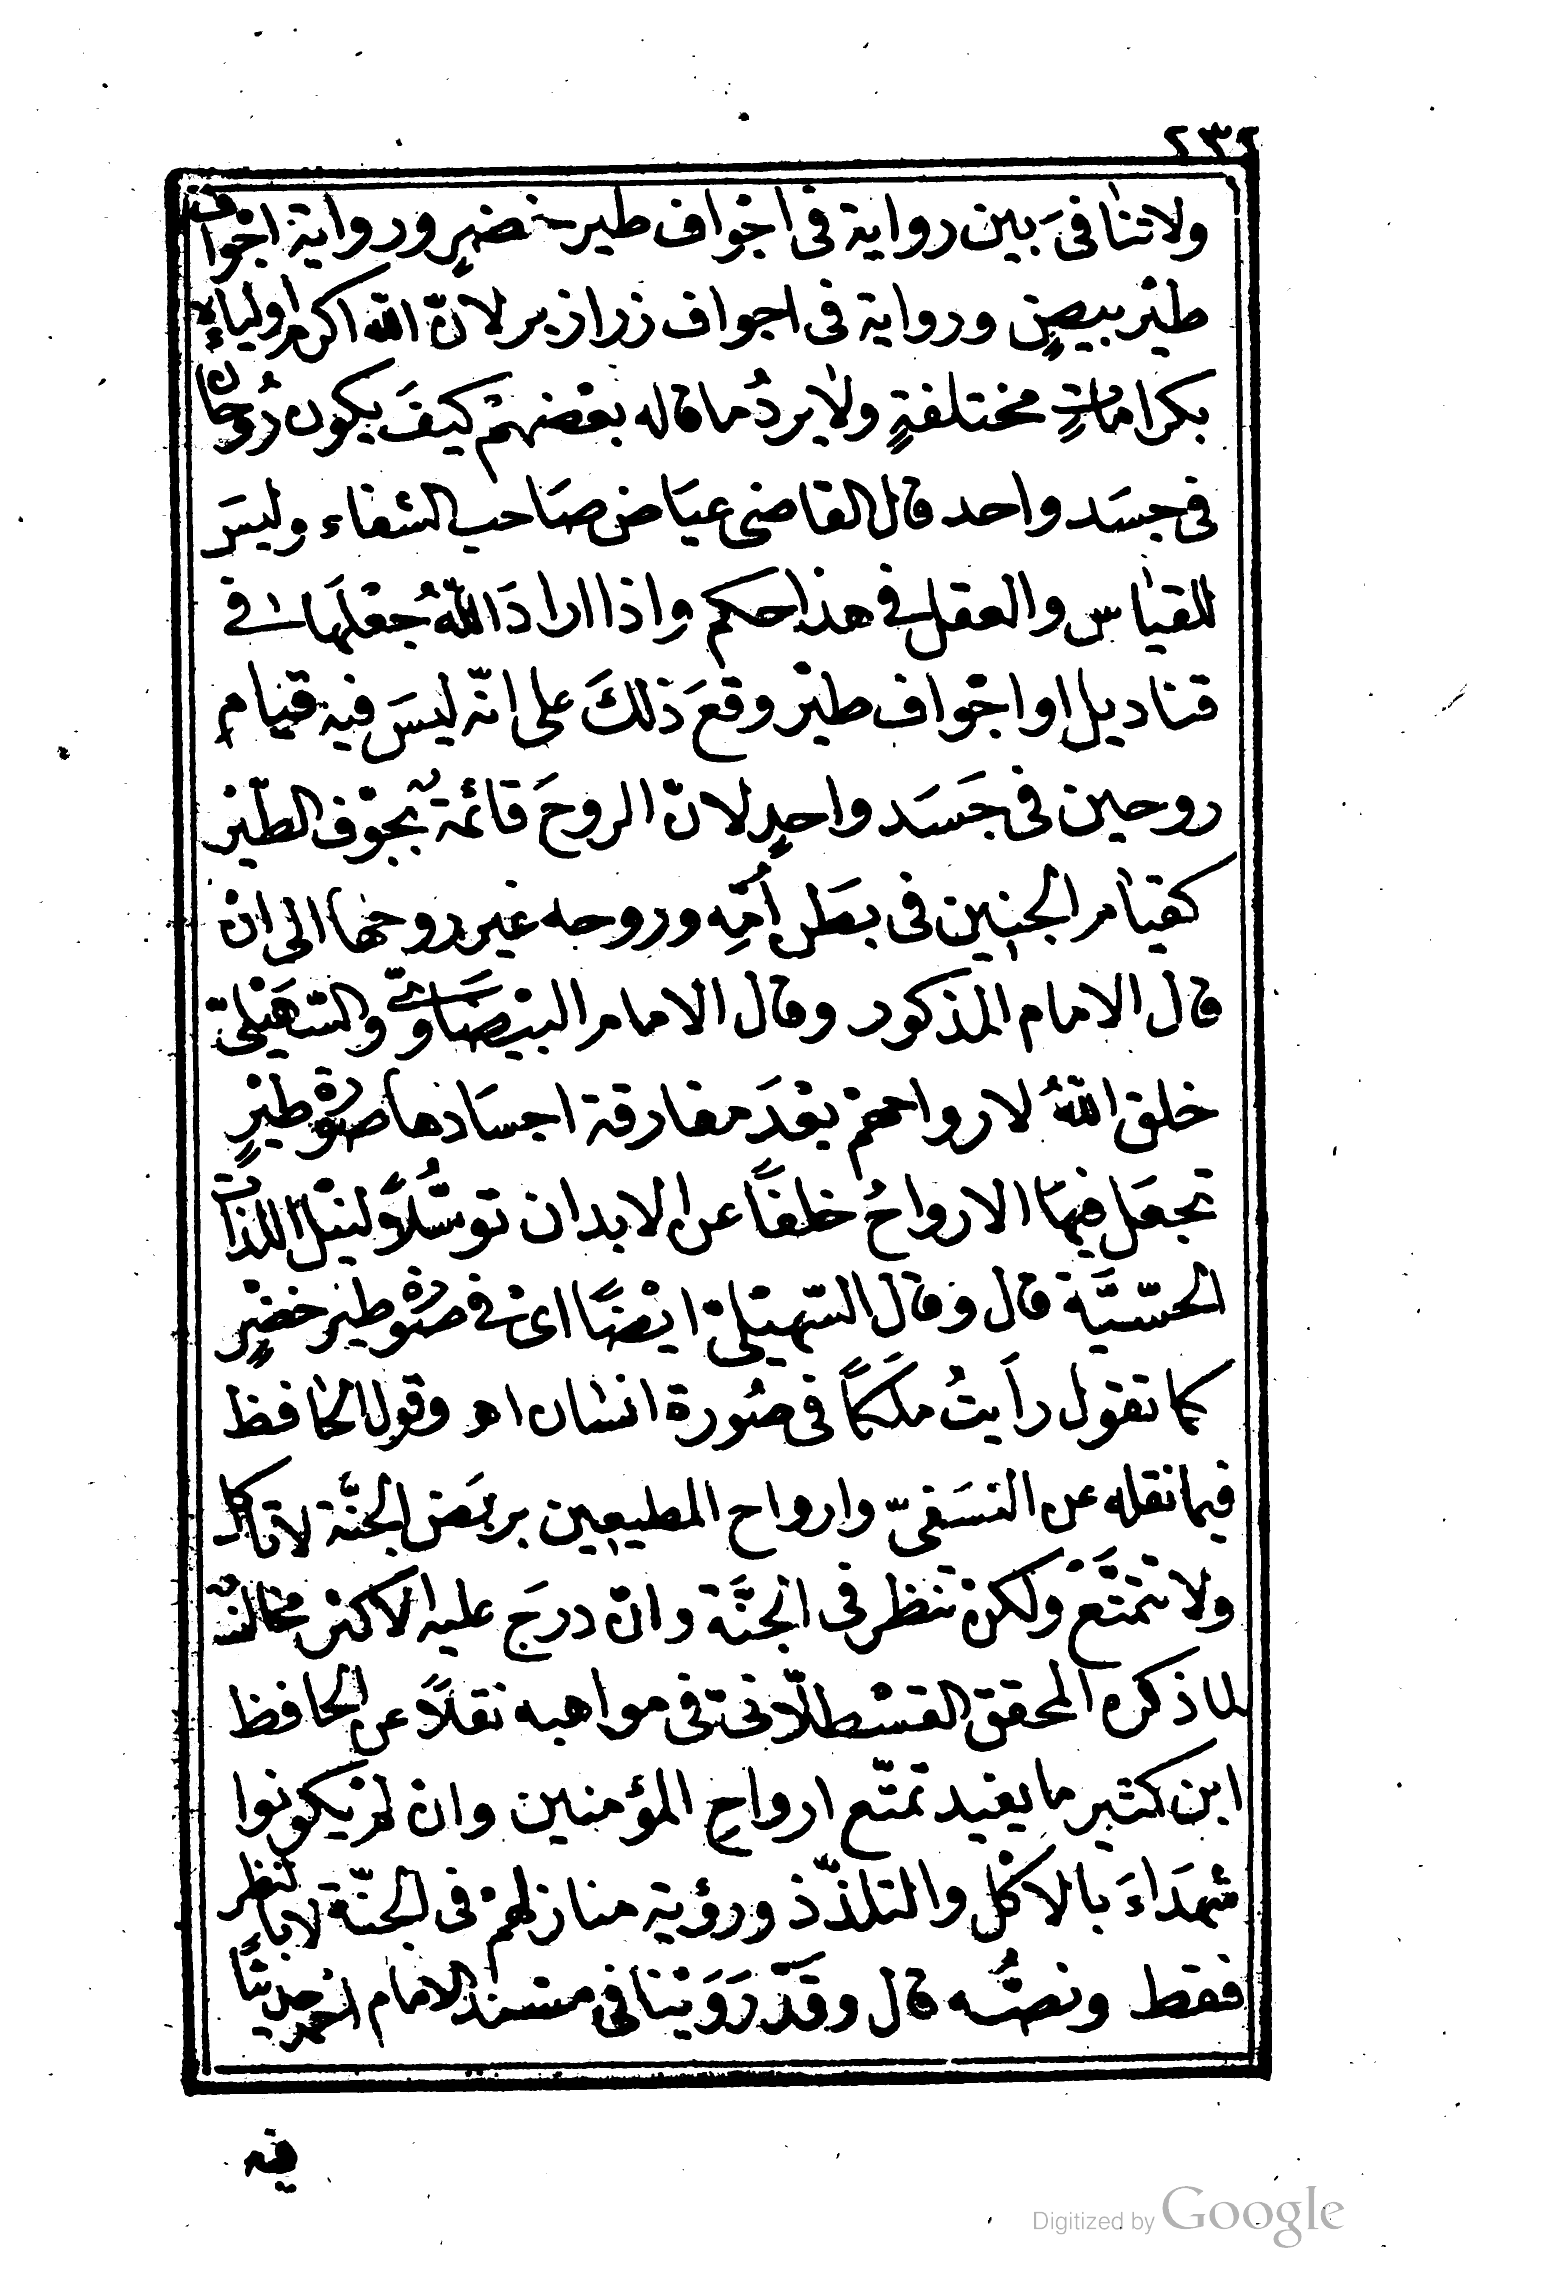 ٢٣٢
ولا تنافىَ بين رواية فى اجْواف طير خضرٍ ورواية اجْواف
طيْر بيضٍ ورواية فى اجواف زرازير لانّ الله اكرم اولياءه
بكراماتٍ مختلفةٍ ولا يردُ ما قاله بعْضهمْ كيفَ يكون رُوحان
فى جسَد واحد قال القاضى عيَاض صَاحب الشفاء وليسَ
للقياس والعقل فى هذا حكم واذا ارادَ اللهُ جعْلهَا فى
قناديل او اجْواف طيْر وقعَ ذلكَ على انّه ليسَ فيه قيام
روحين فى جَسَد واحدٍ لانّ الروحَ قائمة بجوْف الطيْر
كقيام الجنين فى بطن أمّهِ وروحه غير روحها الى انْ
قال الامام المذكور وقال الامام البيْضَاوىّ والسّهَيْلىّ
خلق اللهُ لارواحهمْ بعْدَ مفارقة اجسَادها صورة طيْرٍ
تجعَل فيهَا الارواحُ خلفًا عن الابدان توسُّلاً لنيْل اللذات
الحسّيَّة قال وقال السّهيْلىّ ايْضًا اىْ فى صورة طير خضْرٍ
كما تقول رأيتُ ملَكًا فى صُورة انسَان اه وقول الحافظ
فيما نقله عن النسَفىّ وارواح المطيعين بربَض الجنَّة لا تاكل
ولا تتمَتَّعْ ولكنْ تنظر فى الجنَّة وانْ درجَ عليه الاكثر مخالفٌ
لما ذكره المحقق القسْطلّانىّ فى مواهبه نقلاً عن الحافظ
ابن كثير ما يفيد تمتّع ارواحِ المؤمنين وانْ لمْ يكونوا
شهَداءَ بالاكْل والتلذّذ ورؤية منازلهمْ فى الجنّة لا بالنظر
فقط ونصُّه قال وقَدْ رَوَيْنا فى مسْند الامام احْمد حديثًا
فيه
Digitized by Google